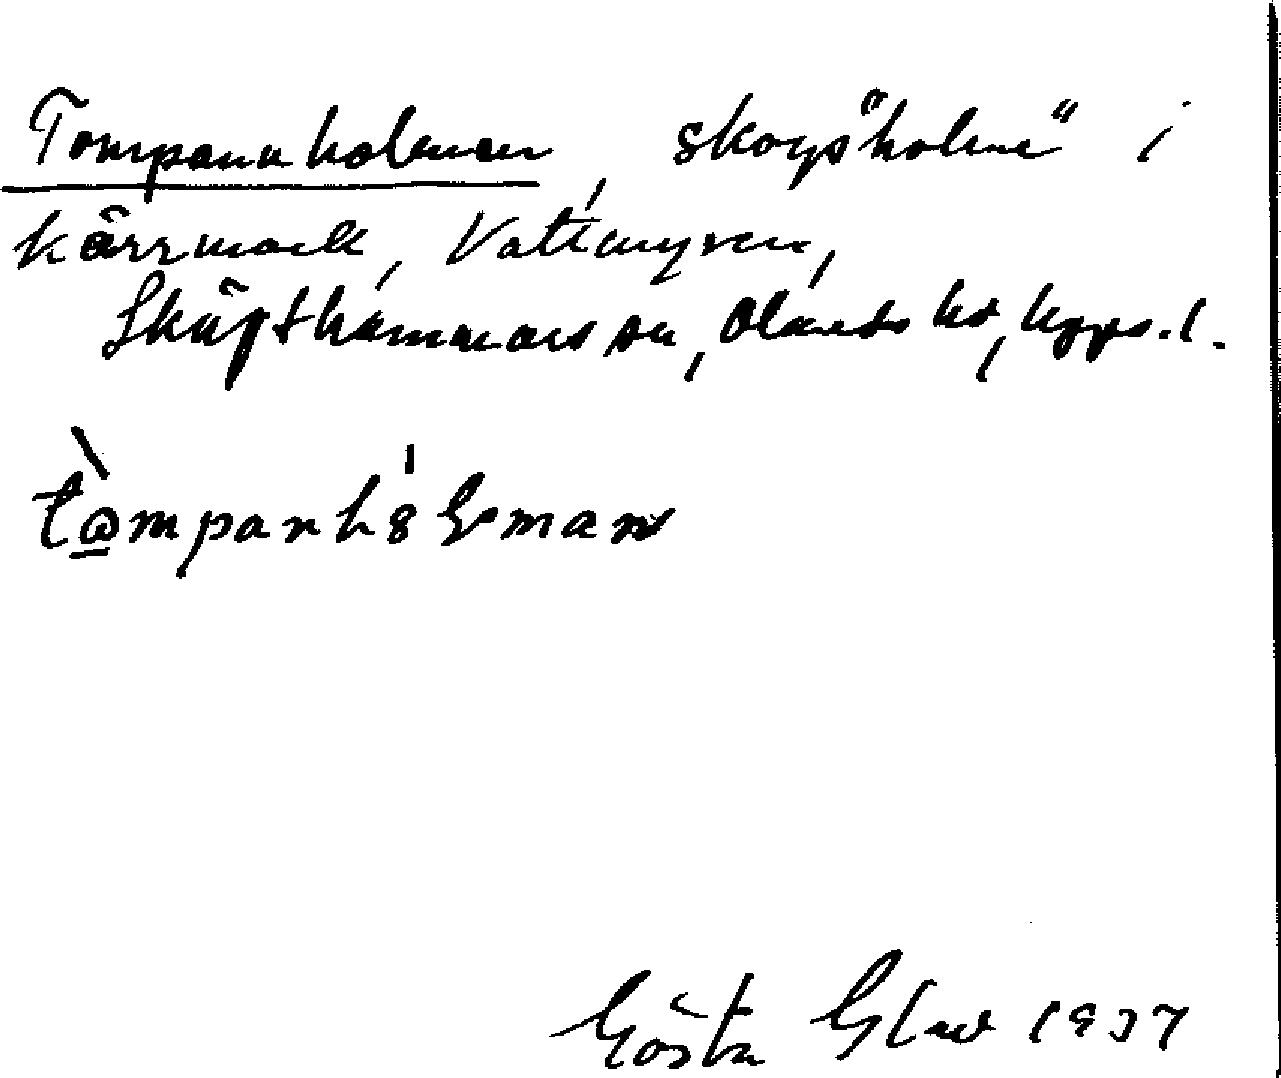 Tompannholmen, skogs"holme" i
kärrmark, Vattmyren,
Skäfthammars sn, Olands hd, Upps. l.
tompanholman
Gösta 1937